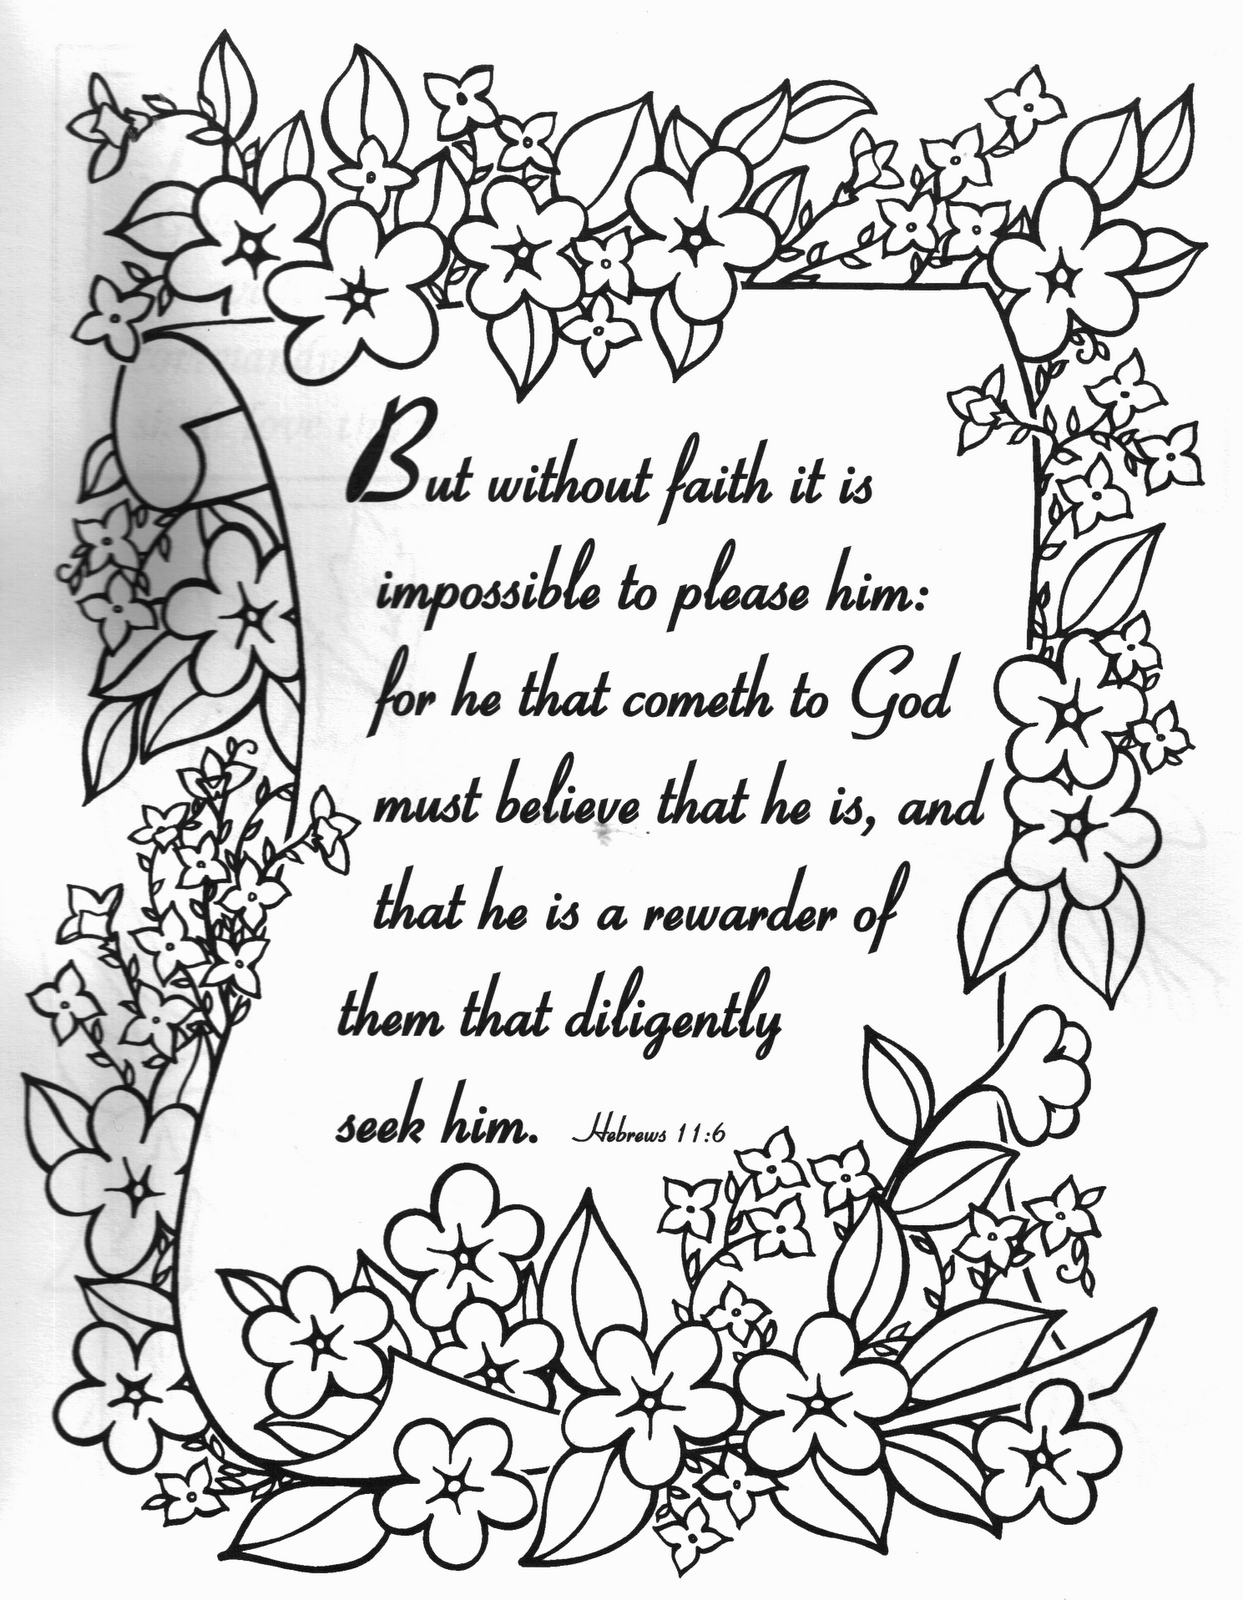 But without faith it is
impossible to please him:
for he that cometh to God
must believe that he is, and
that he is a rewarder of
them that diligently
seek him. Hebrews 11:6